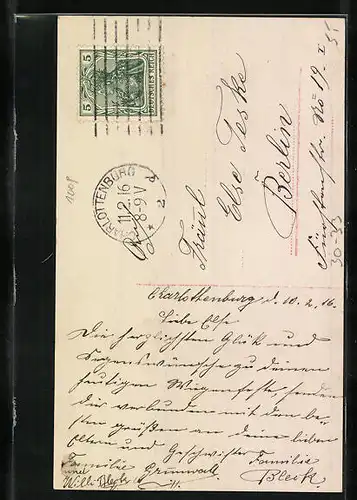 5 5
DEUTSCHES REICH
CHARLOTTENBURG 2
11.2.16
8-9 V
1008
Fräul
Else Teske
Berlin
No 19. I
30-35
35
Charlottenburg d. 10.2.16.
Liebe Else
Die herzlichsten Glück und
Segenswünsche zu deinem
heutigen Wiegenfeste, senden
dir verbunden mit den be-
sten grüßen an deine lieben
Eltern und Geschwister Familie
Familie Grunwald Bleck
Willi